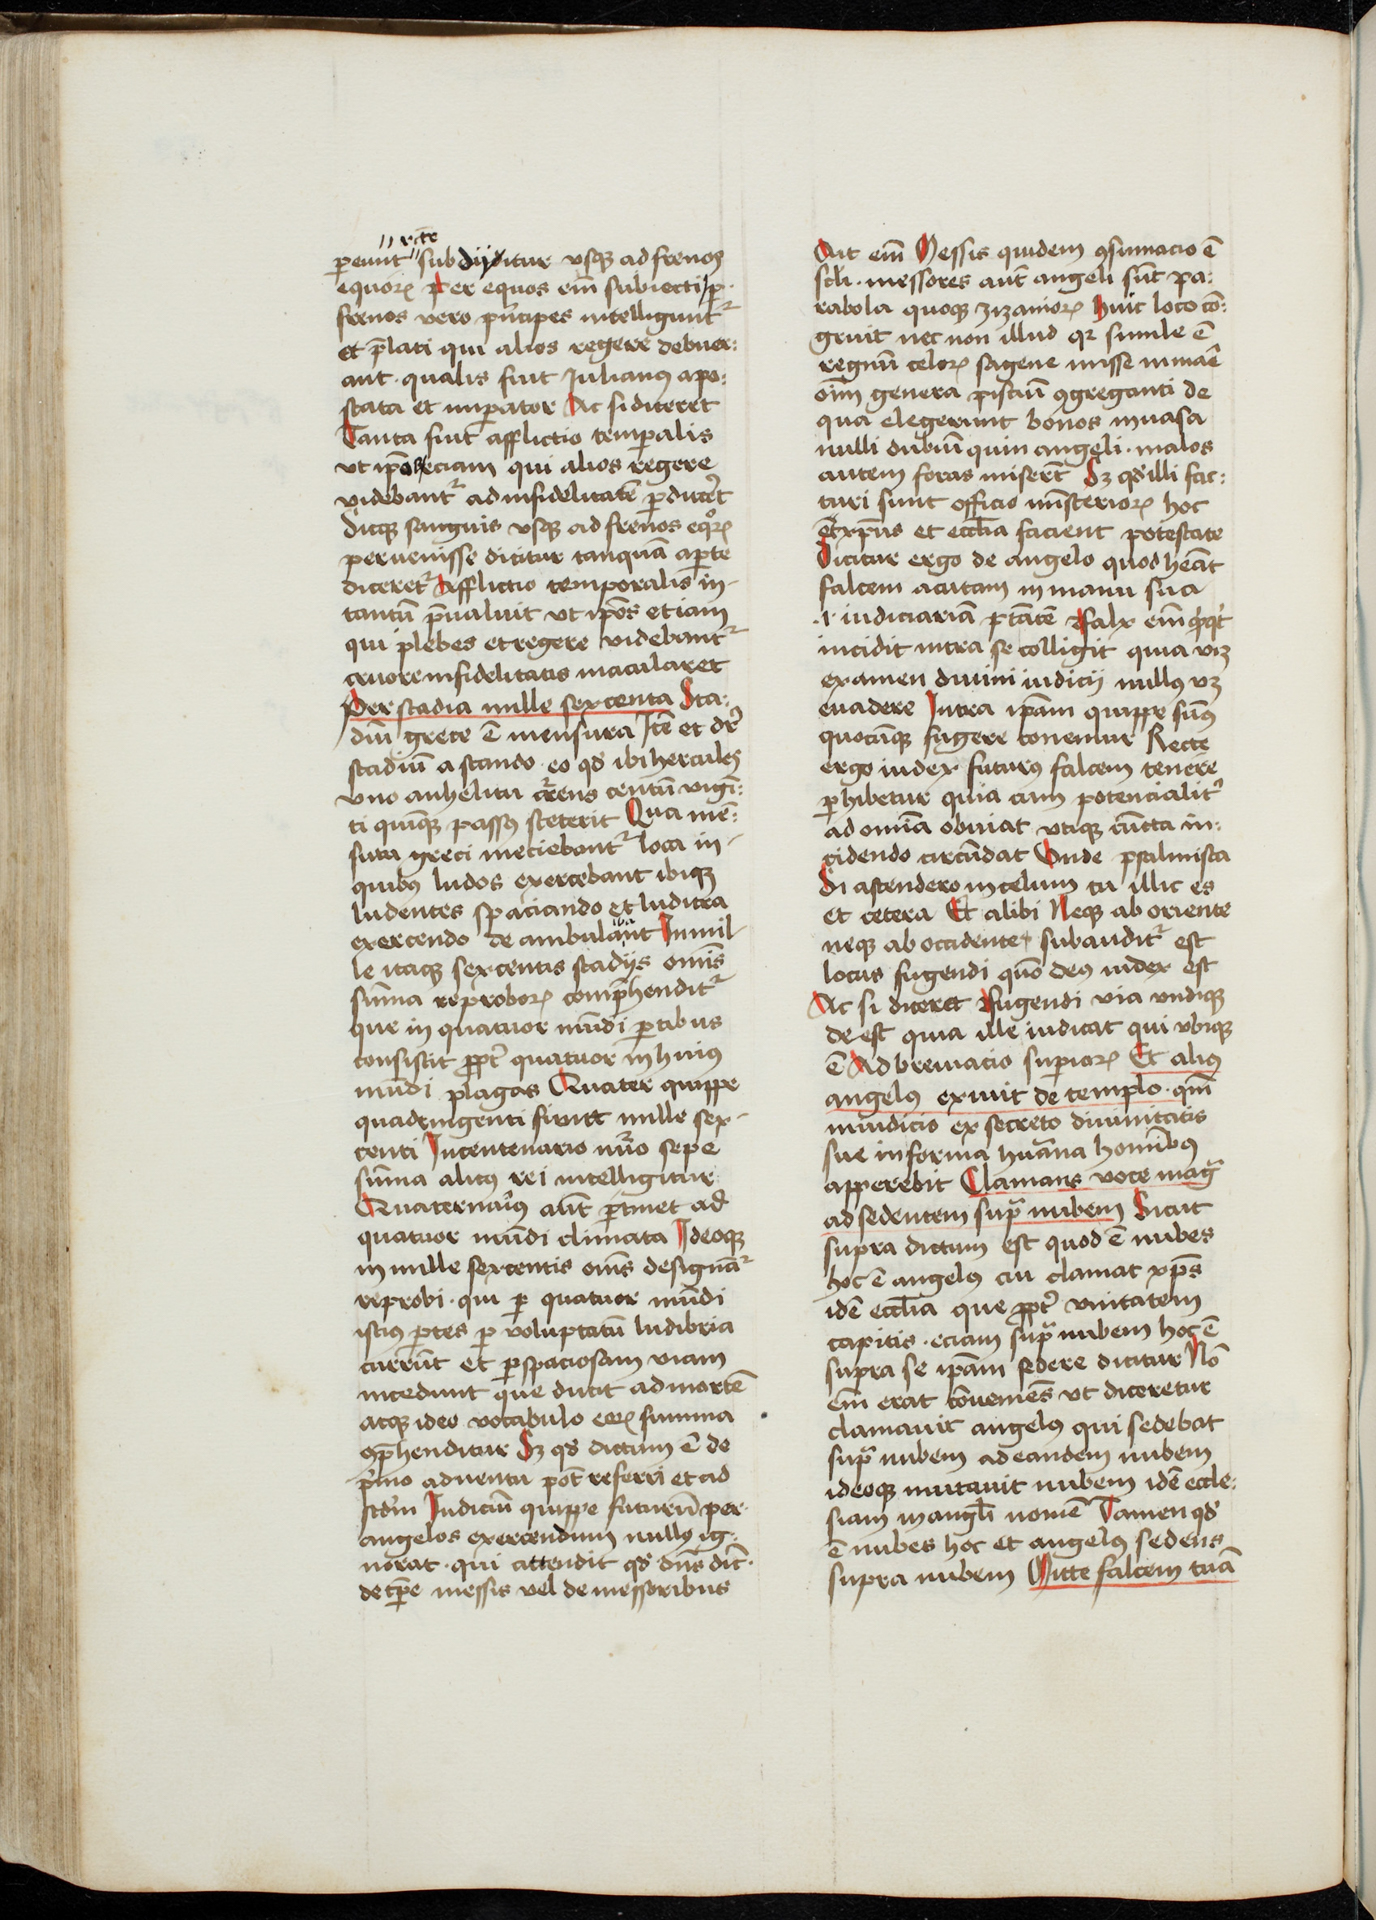 recte
pereunt subdijcitur vsqꝫ ad frenos
equoꝝ Per equos em̄ subiecti / ꝑ
frenos vero p̄ncipes intelligunt᷑
et p̄lati qui alios regere debuer:
ant · qualis fuit Iulianꝰ apo:
stata et imꝑator Ac si diceret
Tanta fuit afflictio temꝑalis
vt ip̄os eciam qui alios regere
videbant᷑ ad infidelitatē ꝑduce̓t
Sicqꝫ sanguis vsqꝫ ad frenos eqͦꝝ
peruenisse dicitur tanquā aꝑte
diceret᷑ Afflictio temporalis in-
tantū p̄ualuit vt ip̄os etiam
qui plebes et regere videbant᷑
cruore infidelitatis macularet
Per stadia mille sexcenta Sta:
diū grece ē mensura Itē et dr̄
stadiū a stando · eo qd̓ ibi herculeꝰ
vno anhelitu cr̄ens centū vigī:
ti quīqꝫ passꝰ steterit Qua mē:
sura greci meciebant᷑ loca in-
quibꝰ ludos exercebant ibiqꝫ
ludentes spaciando et ludicra
exercendo de ambulabant In mil-
le itaqꝫ sexcentis stadijs omīs
sūma reproboꝝ comp̄hendit᷑
que in quatuor mūdi ꝑtibus
consistit ꝓpt̓ quatuor in huius
mūdi plagas Quater quippe
quadringenti fiunt mille sex-
centi In centenario nūo sepe
sūma alicꝰ rei intelligitur
Quaternariꝰ aūt ꝑtinet ad
quatuor mūdi climata Ideoqꝫ
in mille sexcentis om̄s designāt᷑
reprobi · qui ꝑ quatuor mūdi
istiꝰ ꝑtes ꝑ voluptatū ludibria
currūt et ꝑ spaciosam viam
incedunt que ducit ad mortē
atqꝫ ideo vocabulo eoꝝ summa
ↄp̄henditur Sꝫ qd̓ dictum ē de
p̓mo aduentu pōt referri et ad
scd̓m Iudiciū quippe futurū per-
angelos exercendum nullꝰ ig:
norat · qui attendit qd̓ dn̄s dic̄ ·
de tꝑe messis vel de messoribus
Ait em̄ Messis quidem ↄsumacio ē
sc̄li · messores aūt angeli sūt pa:
rabola quoqꝫ zizanioꝝ huic loco cō:
gruit nec non illud qꝛ simile ē
regnū celoꝝ sagene misse in maē
oīm genera pisciū ↄgreganti de
qua elegerunt bonos in vasa
nulli dubiū quin angeli · malos
autem foras miserūt Sꝫ qd̓ illi fac:
turi sunt officio mīsterioꝝ hoc
et xp̄us et eccl̄ia facient potestate
Dicitur ergo de angelo quod heāt
falcem acutam in manu sua
·i· iudiciariā ptātē Falx em̄ qͥcqͥd
incidit intra se colligit quia viꝫ
examen diuini iudicij nullꝰ vꝫ
euadere Intra ip̄am quippe sumꝰ
quocūqꝫ fugere conemur Recte
ergo iudex futurꝰ falcem tenere
ꝑhibetur quia cum potencialit̓
ad omīa obuiat vtiqꝫ cūcta in:
cidendo circūdat Vnde psalmista
Si ascendero in celum tu illic es
et cetera Et alibi Neqꝫ ab oriente
neqꝫ ab occidente subaudit᷑ est
locus fugendi quō deꝰ iudex est
Ac si diceret Fugendi via vndiqꝫ
de est quia ille iudicat qui vbiqꝫ
ē Adbreuiacio superioꝝ Et aliꝰ
angelꝰ exiuit de templo · qm̄
in iudicio ex secreto diuinitatis
sue in forma hūana hominibꝰ
apperebit Clamans voce mag̅
ad sedentem supᷓ nubem Sicut
supra dictum est quod ē nubes
hoc ē angelꝰ cui clamat xp̄s
idē eccl̄ia que ꝓpt̓ vnitatem
capitis · eciam supᷓ nubem hoc ē
supra se ip̄am sedere dicitur Nō
em̄ erat cōueniēs vt diceretur
clamauit angelꝰ qui sedebat
supᷓ nubem ad eandem nubem
ideoqꝫ mutauit nubem idē eccle:
siam in angl̄i nomē Tamen qd̓
ē nubes hoc et angelꝰ sedens
supra nubem Mitte falcem tuā